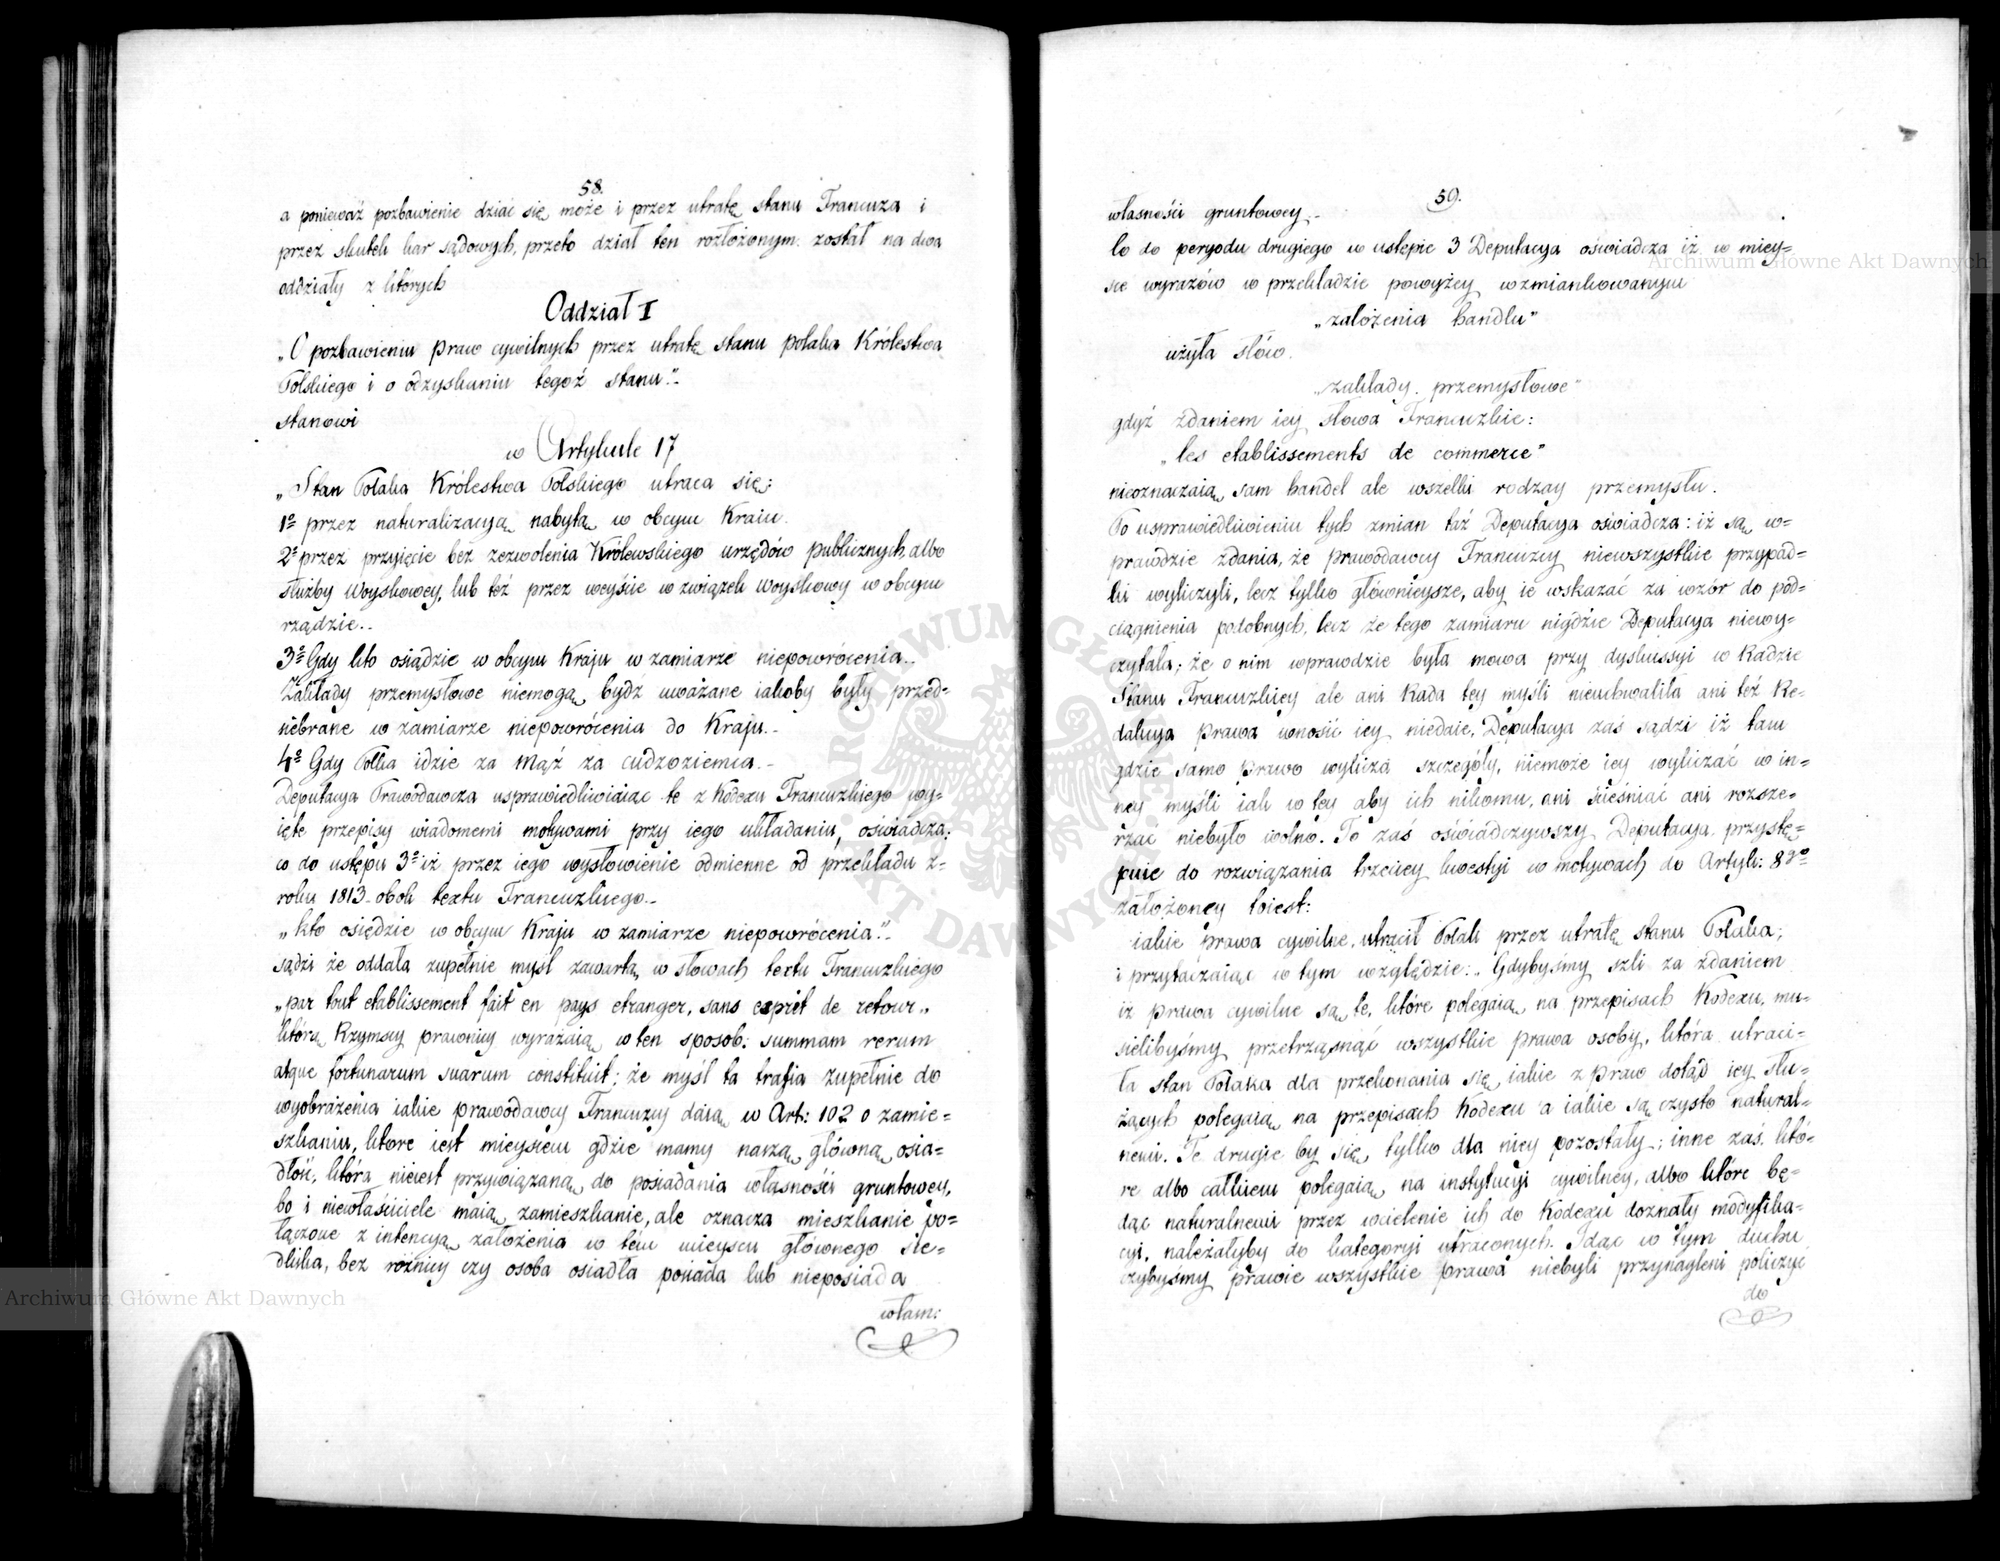 58.
a ponieważ pozbawienie dziać się może i przez utratę stanu Francuza i
przez skutek kar sądowych, przeto dział ten rozłożonym został na dwa
oddziały z których
Oddział I
„O pozbawieniu praw cywilnych przez utratę stanu polaka Królestwa
Polskiego i o odzyskaniu tegoż stanu."-
stanowi
w Artykule 17
„Stan Polaka Królestwa Polskiego utraca się:
1º przez naturalizacyą nabytą w obcym Kraiu.
2º przez przyięcie bez zezwolenia Królewskiego urzędów publicznych albo
służby Woyskowey, lub też przez weyście w związek woyskowy w obcym
rządzie.-
3º Gdy kto osiądzie w obcym Kraju w zamiarze niepowrócenia.-
Zakłady przemysłowe niemogą bydź uważane iakoby były przed-
siebrane w zamiarze niepowrócenia do Kraju.-
4º Gdy Polka idzie za Mąż za cudzoziemca.-
Deputacya Prawodawcza usprawiedliwiaiąc te z Kodexu Francuzkiego wy-
ięte przepisy wiadomemi motywami przy iego układaniu, oświadcza:
co do ustępu 3º iż przez iego wysłowienie odmienne od przekładu z-
roku 1813 obok textu Francuzkiego.-
„kto osiędzie w obcym Kraju w zamiarze niepowrócenia."-
sądzi że oddała zupełnie myśl zawartą w słowach textu Francuzkiego
„par tout etablissement fait en pays etranger, sans esprit de retour„
którą Rzymscy prawnicy wyrażaią w ten sposob: summam rerum
atque fortunarum suarum constituit; że myśl ta trafia zupełnie do
wyobrażenia iakie prawodawcy Francuzcy daią w Art: 102 o zamie-
szkaniu, które iest mieyscem gdzie mamy naszą główną osia-
dłość, która nieiest przywiązaną do posiadania własności gruntowey,
bo i niewłaściciele maią zamieszkanie, ale oznacza mieszkanie po-
łączone z intencyą założenia w tém mieyscu głównego sie-
dliska, bez różnicy czy osoba osiadła posiada lub nieposiada
własn:
59.
własności gruntowey.-
Co do peryodu drugiego w ustępie 3 Deputacya oświadcza iż w miey-
sce wyrazów w przekładzie powyżey wzmiankowanym
„założenia handlu"
użyła słów.
„zakłady przemysłowe"
gdyż zdaniem iey słowa Francuzkie:
„les etablissements de commerce"
nieoznaczaią sam handel ale wszelki rodzay przemysłu.
Po usprawiedliwieniu tych zmian taż Deputacya oświadcza: iż są w-
prawdzie zdania, że prawodawcy Francuzcy niewszystkie przypad-
ki wyliczyli, lecz tylko główniejsze, aby ie wskazać za wzór do pod-
ciągnienia podobnych, lecz że tego zamiaru nigdzie Deputacya niewy-
czytała; że o nim wprawdzie była mowa przy dyskussyi w Radzie
Stanu Francuzkiey ale ani Rada tey myśli nieuchwaliła ani też Re-
dakcya Prawa wnosić iey niedaie, Deputacya zaś sądzi iż tam
gdzie samo Prawo wylicza szczegóły, niemoże iey wyliczać w in-
ney myśli iak w tey aby ich nikomu, ani ścieśniać ani rozsze-
rzać niebyło wolno. To zaś oświadczywszy Deputacya przystę-
puie do rozwiązania trzeciey kwestyi w motywach do Artyk: 8go
założoney toiest:
iakie prawa cywilne utracił Polak przez utratę stanu Polaka;
i przytaczaiąc w tym względzie: „Gdybyśmy szli za zdaniem
iż prawa cywilne są te, które polegaią na przepisach Kodexu, mu-
sielibyśmy przetrząsnąć wszystkie prawa osoby, która utraci-
ła stan Polaka dla przekonania się, iakie z praw dotąd iey słu-
żących polegaią na przepisach Kodexu a iakie są czysto natural-
nemi. Te drugie by się tylko dla niey pozostały; inne zaś, któ-
re albo całkiem polegaią na instytucyi cywilney, albo które bę-
dąc naturalnemi przez wcielenie ich do Kodexu doznały modyfika-
cyi, należałyby do kategoryi utraconych. Idąc w tym duchu
czybyśmy prawie wszystkie prawa niebyli przynagleni policzyć
do
Archiwum Główne Akt Dawnych
Archiwum Główne Akt Dawnych
ARCHIWUM GŁÓWNE AKT DAWNYCH